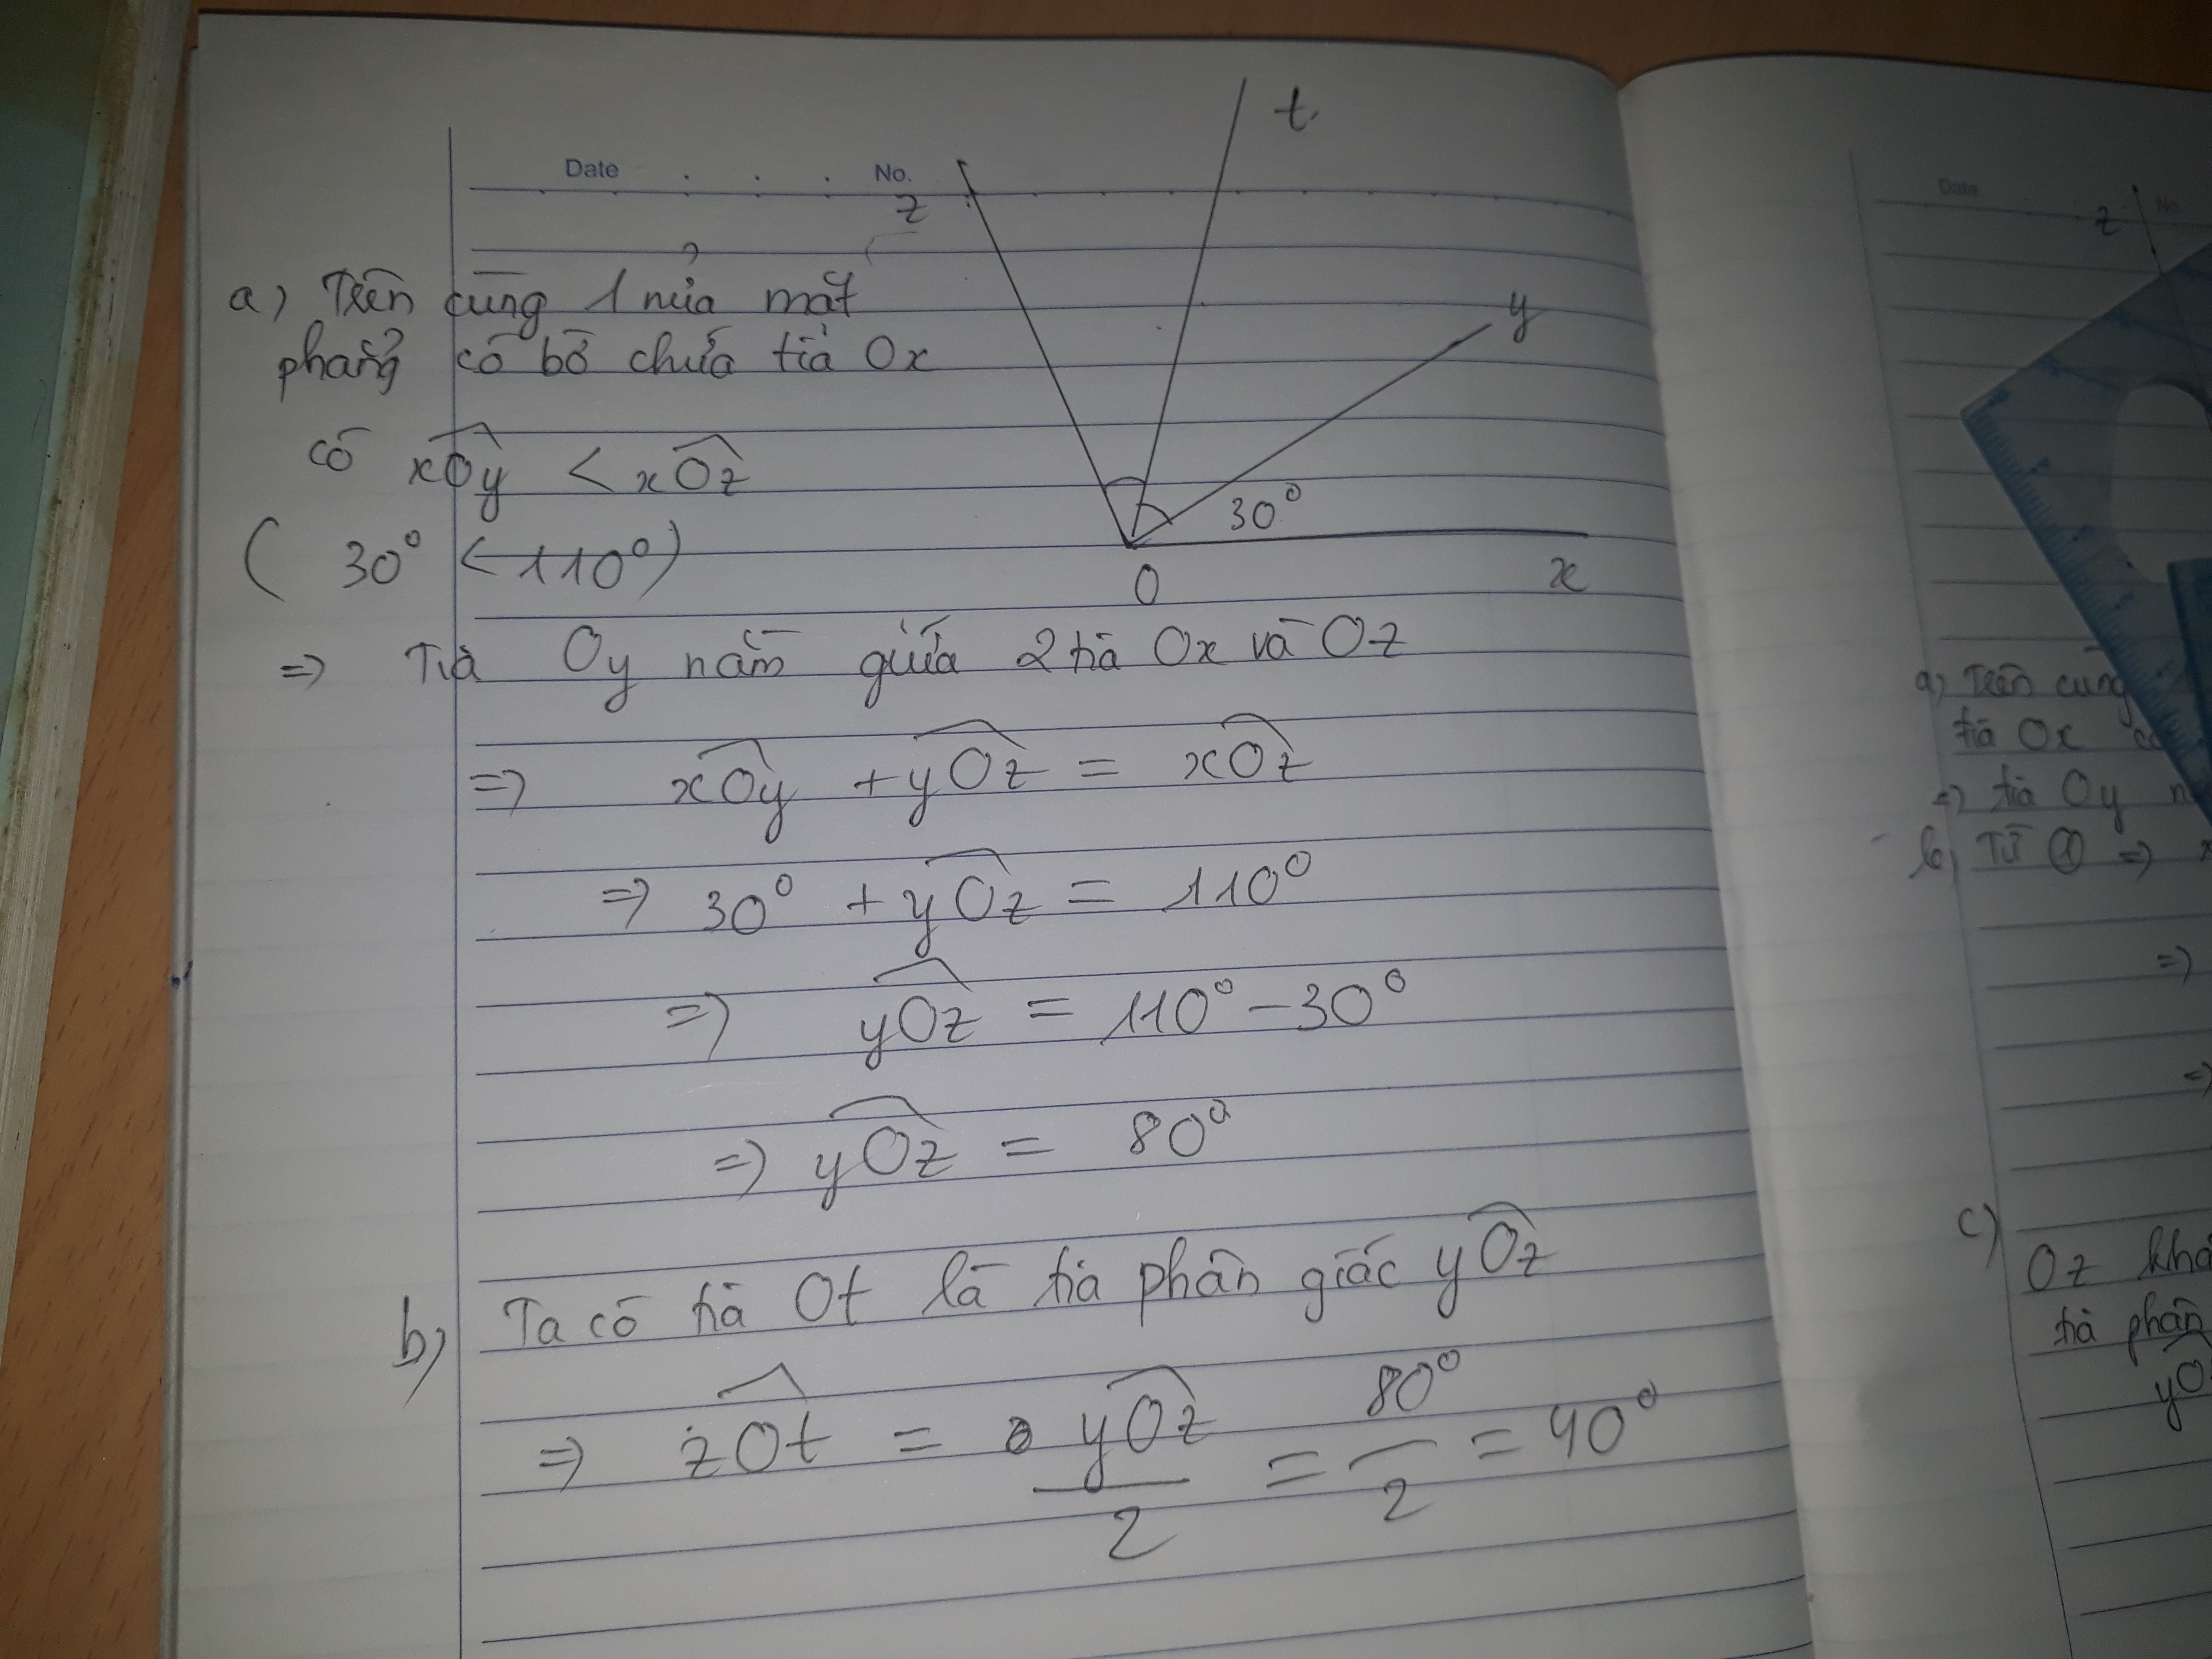 Date No.
t
z
y
30°
O
x
a) Trên cùng 1 nửa mặt
phẳng có bờ chứa tia Ox
có xOy < xOz
( 30° < 110°)
=> Tia Oy nằm giữa 2 tia Ox và Oz
=> xOy + yOz = xOz
=> 30° + yOz = 110°
=> yOz = 110° - 30°
=> yOz = 80°
b) Ta có tia Ot là tia phân giác yOz
=> zOt = yOz/2 = 80°/2 = 40°
Date No.
z
a) Trên cùng
tia Ox
=> tia Oy
b) Từ ① =>
=>
=>
c)
Oz
tia phân